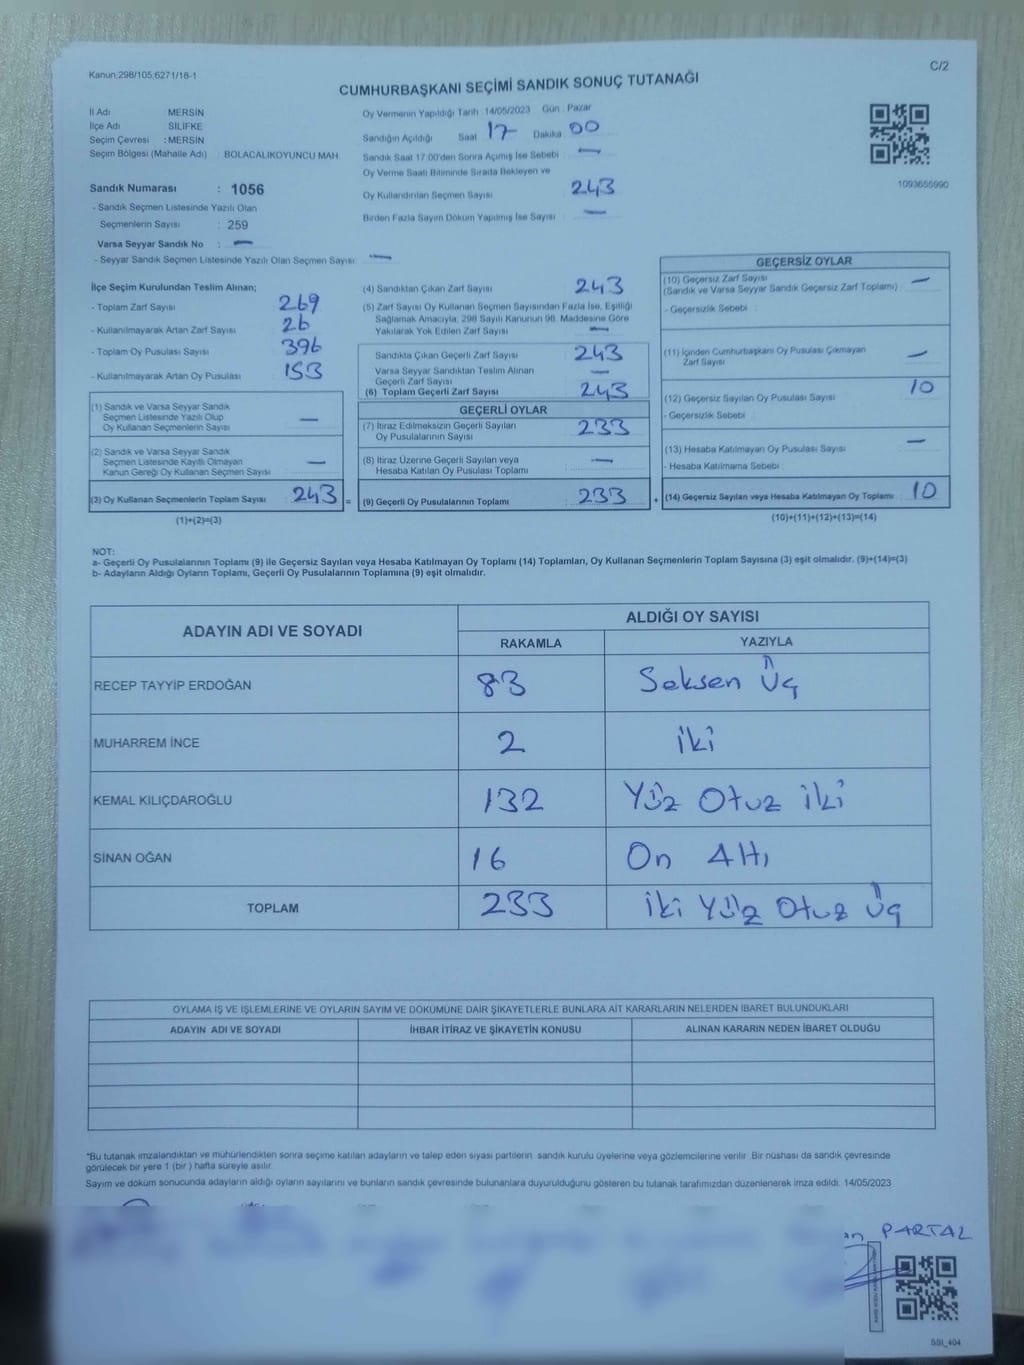 Kanun.298/105,6271/18-1
C/2
CUMHURBAŞKANI SEÇİMİ SANDIK SONUÇ TUTANAĞI
İl Adı : MERSİN
İlçe Adı : SİLİFKE
Seçim Çevresi : MERSİN
Seçim Bölgesi (Mahalle Adı) : BOLACALIKOYUNCU MAH.
Sandık Numarası : 1056
- Sandık Seçmen Listesinde Yazılı Olan
Seçmenlerin Sayısı : 259
Varsa Seyyar Sandık No : —
- Seyyar Sandık Seçmen Listesinde Yazılı Olan Seçmen Sayısı: —
Oy Vermenin Yapıldığı Tarih 14/05/2023 Gün : Pazar
Sandığın Açıldığı Saat 17 Dakika 00
Sandık Saat 17.00'den Sonra Açımış İse Sebebi : —
Oy Verme Saati Bitiminde Sırada Bekleyen ve
Oy Kullandırılan Seçmen Sayısı 243
Birden Fazla Sayım Döküm Yapılmış İse Sayısı : —
1093655990
İlçe Seçim Kurulundan Teslim Alınan;
- Toplam Zarf Sayısı 269
- Kullanılmayarak Artan Zarf Sayısı 26
- Toplam Oy Pusulası Sayısı 396
- Kullanılmayarak Artan Oy Pusulası 153
(1) Sandık ve Varsa Seyyar Sandık
Seçmen Listesinde Yazılı Olup
Oy Kullanan Seçmenlerin Sayısı : —
(2) Sandık ve Varsa Seyyar Sandık
Seçmen Listesinde Kayıtlı Olmayan
Kanun Gereği Oy Kullanan Seçmen Sayısı : —
(3) Oy Kullanan Seçmenlerin Toplam Sayısı : 243 =
(1)+(2)=(3)
(4) Sandıktan Çıkan Zarf Sayısı : 243
(5) Zarf Sayısı Oy Kullanan Seçmen Sayısından Fazla İse, Eşitliği
Sağlamak Amacıyla, 298 Sayılı Kanunun 98. Maddesine Göre
Yakılarak Yok Edilen Zarf Sayısı : —
Sandıkta Çıkan Geçerli Zarf Sayısı : 243
Varsa Seyyar Sandıktan Teslim Alınan
Geçerli Zarf Sayısı : —
(6) Toplam Geçerli Zarf Sayısı : 243
GEÇERLİ OYLAR
(7) İtiraz Edilmeksizin Geçerli Sayılan
Oy Pusulalarının Sayısı : 233
(8) İtiraz Üzerine Geçerli Sayılan veya
Hesaba Katılan Oy Pusulası Toplamı : —
(9) Geçerli Oy Pusulalarının Toplamı : 233 +
GEÇERSİZ OYLAR
(10) Geçersiz Zarf Sayısı
(Sandık ve Varsa Seyyar Sandık Geçersiz Zarf Toplamı) : —
- Geçersizlik Sebebi :
(11) İçinden Cumhurbaşkanı Oy Pusulası Çıkmayan
Zarf Sayısı : —
(12) Geçersiz Sayılan Oy Pusulası Sayısı : 10
- Geçersizlik Sebebi :
(13) Hesaba Katılmayan Oy Pusulası Sayısı : —
- Hesaba Katılmama Sebebi :
(14) Geçersiz Sayılan veya Hesaba Katılmayan Oy Toplamı : 10
(10)+(11)+(12)+(13)=(14)
NOT:
a- Geçerli Oy Pusulalarının Toplamı (9) ile Geçersiz Sayılan veya Hesaba Katılmayan Oy Toplamı (14) Toplamları, Oy Kullanan Seçmenlerin Toplam Sayısına (3) eşit olmalıdır. (9)+(14)=(3)
b- Adayların Aldığı Oyların Toplamı, Geçerli Oy Pusulalarının Toplamına (9) eşit olmalıdır.
ADAYIN ADI VE SOYADI
ALDIĞI OY SAYISI
RAKAMLA YAZIYLA
RECEP TAYYİP ERDOĞAN 83 Seksen Üç
MUHARREM İNCE 2 iki
KEMAL KILIÇDAROĞLU 132 Yüz Otuz iki
SİNAN OĞAN 16 On Altı
TOPLAM 233 iki Yüz Otuz Üç
OYLAMA İŞ VE İŞLEMLERİNE VE OYLARIN SAYIM VE DÖKÜMÜNE DAİR ŞİKAYETLERLE BUNLARA AİT KARARLARIN NELERDEN İBARET BULUNDUKLARI
ADAYIN ADI VE SOYADI İHBAR İTİRAZ VE ŞİKAYETİN KONUSU ALINAN KARARIN NEDEN İBARET OLDUĞU
*Bu tutanak imzalandıktan ve mühürlendikten sonra seçime katılan adayların ve talep eden siyasi partilerin sandık kurulu üyelerine veya gözlemcilerine verilir. Bir nüshası da sandık çevresinde
görülecek bir yere 1 (bir ) hafta süreyle asılır.
Sayım ve döküm sonucunda adayların aldığı oyların sayılarını ve bunların sandık çevresinde bulunanlara duyurulduğunu gösteren bu tutanak tarafımızdan düzenlenerek imza edildi. 14/05/2023
PARTAL
SSI_404